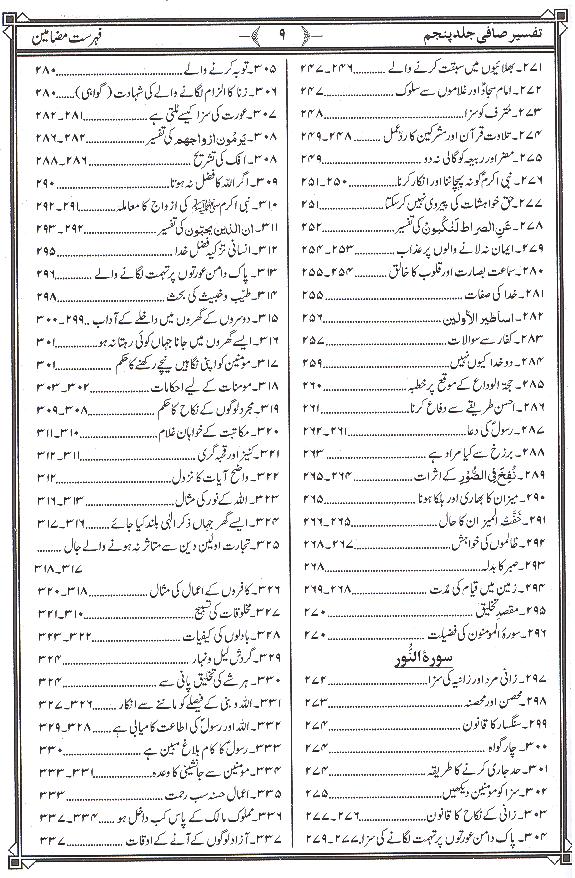 تفسیر صافی جلد پنجم
۹
فہرست مضامین
۲۷۱۔ بھلائیوں میں سبقت کرنے والے ............ ۲۴۶۔۲۴۷
۲۷۲۔ امام سجادؑ اور غلاموں سے سلوک ............ ۲۴۷
۲۷۳۔ مترف کو سزا ............ ۲۴۸
۲۷۴۔ تلاوت قرآن اور مشرکین کا ردِّ عمل ............ ۲۴۸۔۲۴۹
۲۷۵۔ مضر اور ربیعہ کو گالی نہ دو ............ ۲۴۹
۲۷۶۔ نبی اکرمؐ کو نہ پہچاننا اور انکار کرنا ............ ۲۵۰۔۲۵۱
۲۷۷۔ حق خواہشات کی پیروی نہیں کرسکتا ............ ۲۵۱
۲۷۸۔ عَنِ الصِّرَاطِ لَنَٰكِبُونَ کی تفسیر ............ ۲۵۲
۲۷۹۔ ایمان نہ لانے والوں پر عذاب ............ ۲۵۳۔۲۵۴
۲۸۰۔ سماعت بصارت اور قلوب کا خالق ............ ۲۵۴۔۲۵۵
۲۸۱۔ خدا کی صفات ............ ۲۵۵
۲۸۲۔ اساطیر الأولین ............ ۲۵۶
۲۸۳۔ کفار سے سوالات ............ ۲۵۷
۲۸۴۔ دو خدا کیوں نہیں ............ ۲۵۹
۲۸۵۔ حجۃ الوداع کے موقع پر خطبہ ............ ۲۶۰
۲۸۶۔ احسن طریقے سے دفاع کرنا ............ ۲۶۱
۲۸۷۔ رسولؐ کی دعا ............ ۲۶۱۔۲۶۲
۲۸۸۔ برزخ سے کیا مراد ہے ............ ۲۶۳
۲۸۹۔ نُفِخَ فِی الصُّوْرِ کے اثرات ............ ۲۶۴۔۲۶۵
۲۹۰۔ میزان کا بھاری اور ہلکا ہونا ............ ۲۶۵
۲۹۱۔ خَفَّتْ المیزان کا حال ............ ۲۶۵۔۲۶۶
۲۹۲۔ ظالموں کی خواہش ............ ۲۶۷۔۲۶۸
۲۹۳۔ صبر کا بدلہ ............ ۲۶۸
۲۹۴۔ زمین میں قیام کی مدت ............ ۲۶۸۔۲۶۹
۲۹۵۔ مقصد تخلیق ............ ۲۷۰
۲۹۶۔ سورۃ المؤمنون کی فضیلت ............ ۲۷۰
سورۃ النُّور
۲۹۷۔ زانی مرد اور زانیہ کی سزا ............ ۲۷۲
۲۹۸۔ محصن اور محصنہ ............ ۲۷۳
۲۹۹۔ سنگسار کا قانون ............ ۲۷۴
۳۰۰۔ چار گواہ ............ ۲۷۴
۳۰۱۔ حد جاری کرنے کا طریقہ ............ ۲۷۴
۳۰۲۔ سزا کو مومنین دیکھیں ............ ۲۷۵
۳۰۳۔ زانی کے نکاح کا قانون ............ ۲۷۶۔۲۷۷
۳۰۴۔ پاک دامن عورتوں پر تہمت لگانے کی سزا .. ۲۷۷۔۲۷۹
۳۰۵۔ توبہ کرنے والے ............ ۲۸۰
۳۰۶۔ زنا کا الزام لگانے والے کی شہادت (گواہی) ..... ۲۸۰
۳۰۷۔ عورت کی سزا کیسے ٹلتی ہے ............ ۲۸۱۔۲۸۲
۳۰۸۔ یرمون ازواجهم کی تفسیر ............ ۲۸۲۔۲۸۶
۳۰۸۔ افک کی تشریح ............ ۲۸۶۔۲۸۸
۳۰۹۔ اگر اللہ کا فضل نہ ہوتا ............ ۲۹۰
۳۱۰۔ نبی اکرم ﷺ کی ازواج کا معاملہ ............ ۲۹۱۔۲۹۲
۳۱۱۔ ان الذین یحبون کی تفسیر ............ ۲۹۲۔۲۹۳
۳۱۲۔ انسانی تزکیہ فضل خدا ............ ۲۹۵
۳۱۳۔ پاک دامن عورتوں پر تہمت لگانے والے ............ ۲۹۶
۳۱۴۔ طیّب و خبیث کی بحث ............ ۲۹۸
۳۱۵۔ دوسروں کے گھروں میں داخلے کے آداب ... ۲۹۹۔۳۰۰
۳۱۶۔ ایسے گھروں میں جانا جہاں کوئی رہتا نہ ہو ............ ۳۰۱
۳۱۷۔ مومنین کو اپنی نگاہیں نیچے رکھنے کا حکم ............ ۳۰۱
۳۱۸۔ مومنات کے لیے احکامات ............ ۳۰۲۔۳۰۳
۳۱۹۔ مجرد لوگوں کے نکاح کا حکم ............ ۳۰۸۔۳۰۹
۳۲۰۔ مکاتبت کے خواہان غلام ............ ۳۱۰۔۳۱۱
۳۲۱۔ کنیز اور قحبہ گری ............ ۳۱۱۔۳۱۲
۳۲۲۔ واضح آیات کا نزول ............ ۳۱۲
۳۲۳۔ اللہ کے نور کی مثال ............ ۳۱۳۔۳۱۶
۳۲۴۔ ایسے گھر جہاں ذکر الٰہی بلند کیا جائے ............ ۳۱۶۔۳۱۷
۳۲۵۔ تجارت اولین دین سے متاثر نہ ہونے والے جال ............
۳۱۷۔۳۱۸
۳۲۶۔ کافروں کے اعمال کی مثال ............ ۳۱۸۔۳۲۰
۳۲۷۔ مخلوقات کی تسبیح ............ ۳۱۰۔۳۲۱
۳۲۸۔ بادلوں کی کیفیات ............ ۳۲۲۔۳۲۳
۳۲۹۔ گردش لیل و نہار ............ ۳۲۴
۳۳۰۔ ہر شے کی تخلیق پانی سے ............ ۳۲۴
۳۳۱۔ اللہ و نبی کے فیصلے کو ماننے سے انکار ............ ۳۲۶۔۳۲۷
۳۳۲۔ اللہ اور رسولؐ کی اطاعت کامیابی ہے ............ ۳۲۸۔۳۲۹
۳۳۳۔ رسولؐ کا کام بلاغ مبین ہے ............ ۳۳۰
۳۳۴۔ مومنین سے جانشینی کا وعدہ ............ ۳۳۱۔۳۳۲
۳۳۵۔ اعمال حسنہ سبب رحمت ............ ۳۳۳
۳۳۶۔ مملوک مالک کے پاس کب داخل ہو ............ ۳۳۴۔۳۳۷
۳۳۷۔ آزاد لوگوں کے آنے کے اوقات ............ ۳۳۷